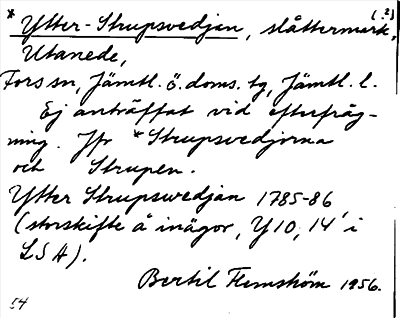 * Ytter-Strupsvedjan, slåttermark, (.2)
Utanede,
Fors sn, Jämtl. ö. doms. tg, Jämtl. l.
Ej anträffat vid efterfråg-
ning. Jfr *Strupsvedjorna
och Strupen.
Ytter Strupswedjan 1785-86
(storskifte å inägor, Y10, 14' i
LSA).
Bertil Flemström 1956.
54